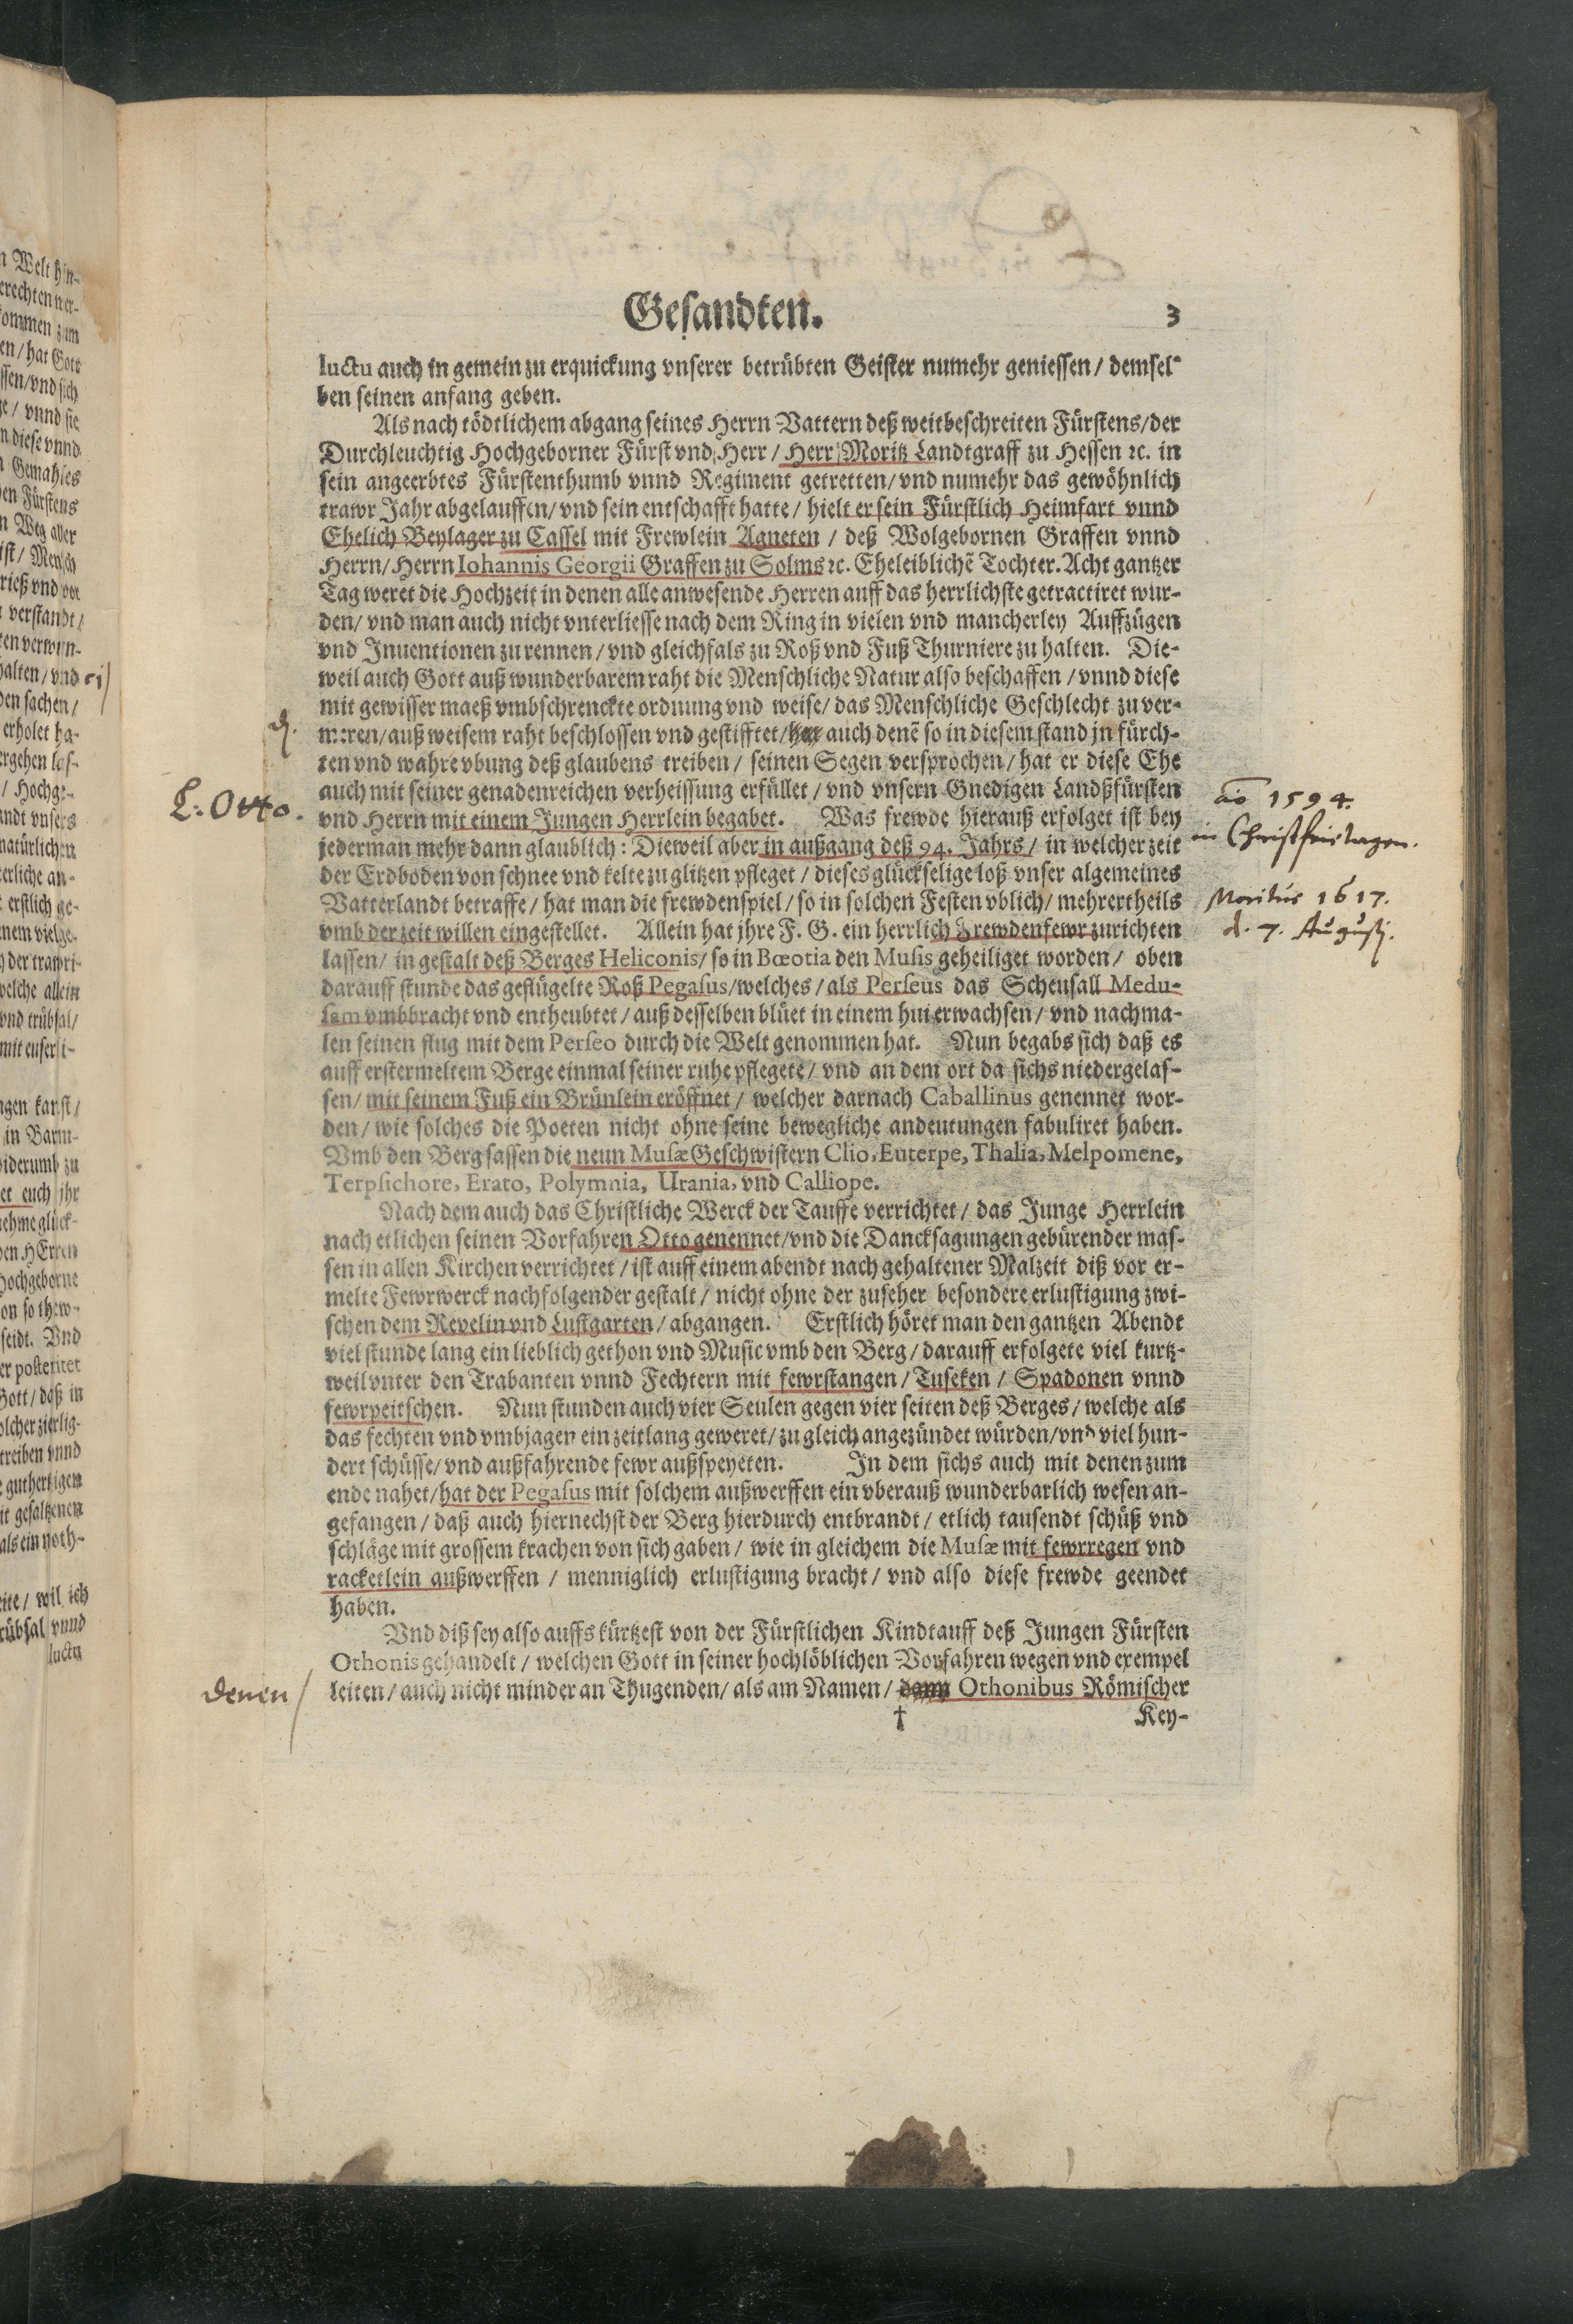 Gesandten. 3
luctu auch in gemein zu erquickung vnserer betrübten Geister numehr geniessen / demsel-
ben seinen anfang geben.
Als nach tödtlichem abgang seines Herrn Vattern deß weitbeschreiten Fürstens / der
Durchleuchtig Hochgeborner Fürst vnd Herr / Herr Moritz Landtgraff zu Hessen ꝛc. in
sein angeerbtes Fürstenthumb vnnd Regiment getretten / vnd numehr das gewöhnlich
trawr Jahr abgelauffen / vnd sein entschafft hatte / hielt er sein Fürstlich Heimfart vnnd
Ehelich Beylager zu Cassel mit Frewlein Agneten / deß Wolgebornen Graffen vnnd
Herrn / Herrn Iohannis Georgii Graffen zu Solms ꝛc. Eheleiblichẽ Tochter. Acht gantzer
Tag weret die Hochzeit in denen alle anwesende Herren auff das herrlichste getractiret wur-
den / vnd man auch nicht vnterliesse nach dem Ring in vielen vnd mancherley Auffzügen
vnd Inuentionen zu rennen / vnd gleichfals zu Roß vnd Fuß Thurniere zu halten. Die-
weil auch Gott auß wunderbarem raht die Menschliche Natur also beschaffen / vnnd diese
mit gewisser maeß vmbschrenckte ordnung vnd weise / das Menschliche Geschlecht zu ver-
meren / auß weisem raht beschlossen vnd gestifftet / auch denẽ so in diesem stand jn fürch-
ten vnd wahre vbung deß glaubens treiben / seinen Segen versprochen / hat er diese Ehe
auch mit seiner genadenreichen verheissung erfüllet / vnd vnsern Gnedigen Landßfürsten
L: Otto.
vnd Herrn mit einem Jungen Herrlein begabet. Was frewde hierauß erfolget ist bey
aõ 1594.
in Christfeirtagen.
jederman mehr dann glaublich: Dieweil aber in außgang deß 94. Jahrs / in welcher zeit
der Erdboden von schnee vnd kelte zu glitzen pfleget / dieses glückselige loß vnser algemeines
Vatterlandt betraffe / hat man die frewdenspiel / so in solchen Festen vblich / mehrertheils
Moritur 1617.
d. 7. Augusti.
vmb der zeit willen eingestellet. Allein hat jhre F. G. ein herrlich Frewdenfewr zurichten
lassen / in gestalt deß Berges Heliconis / so in Bœotia den Musis geheiliget worden / oben
darauff stunde das geflügelte Roß Pegasus / welches / als Perseus das Scheusall Medu-
sam vmbbracht vnd entheubtet / auß desselben blüet in einem hui erwachsen / vnd nachma-
len seinen flug mit dem Perseo durch die Welt genommen hat. Nun begabs sich daß es
auff erstermeltem Berge einmal seiner ruhe pflegete / vnd an dem ort da sichs niedergelas-
sen / mit seinem Fuß ein Brünlein eröffnet / welcher darnach Caballinus genennet wor-
den / wie solches die Poeten nicht ohne seine bewegliche andeutungen fabuliret haben.
Vmb den Berg sassen die neun Musæ Geschwistern Clio, Euterpe, Thalia, Melpomene,
Terpsichore, Erato, Polymnia, Urania, vnd Calliope.
Nach dem auch das Christliche Werck der Tauffe verrichtet / das Junge Herrlein
nach etlichen seinen Vorfahren Otto genennet / vnd die Dancksagungen gebürender mas-
sen in allen Kirchen verrichtet / ist auff einem abendt nach gehaltener Malzeit diß vor er-
melte Fewrwerck nachfolgender gestalt / nicht ohne der zuseher besondere erlustigung zwi-
schen dem Revelin vnd Lustgarten / abgangen. Erstlich höret man den gantzen Abendt
viel stunde lang ein lieblich gethon vnd Music vmb den Berg / darauff erfolgete viel kurtz-
weil vnter den Trabanten vnnd Fechtern mit fewrstangen / Tuseken / Spadonen vnnd
fewrpeitschen. Nun stunden auch vier Seulen gegen vier seiten deß Berges / welche als
das fechten vnd vmbjagen ein zeitlang geweret / zu gleich angezündet würden / vnd viel hun-
dert schüsse / vnd außfahrende fewr außspeyeten. In dem sichs auch mit denen zum
ende nahet / hat der Pegasus mit solchem außwerffen ein vberauß wunderbarlich wesen an-
gefangen / daß auch hiernechst der Berg hierdurch entbrandt / etlich tausendt schüß vnd
schläge mit grossem krachen von sich gaben / wie in gleichem die Musæ mit fewrregen vnd
racketlein außwerffen / menniglich erlustigung bracht / vnd also diese frewde geendet
haben.
Vnd diß sey also auffs kürtzest von der Fürstlichen Kindtauff deß Jungen Fürsten
Othonis gehandelt / welchen Gott in seiner hochlöblichen Vorfahren wegen vnd exempel
denen /
leiten / auch nicht minder an Thugenden / als am Namen / dann Othonibus Römischer
† Key-